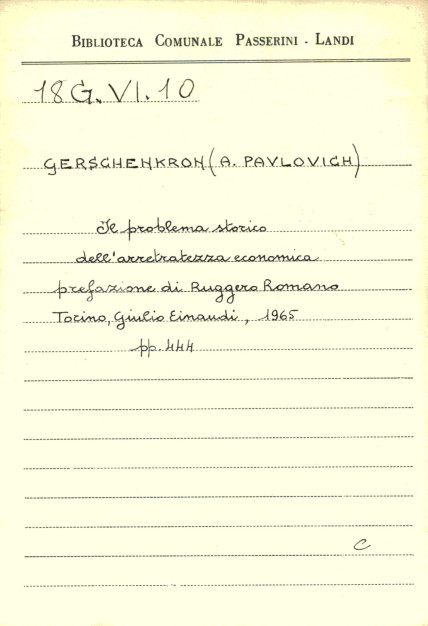 BIBLIOTECA COMUNALE PASSERINI - LANDI
18G.VI.10
GERSCHENKRON (A. PAVLOVICH)
Il problema storico
dell'arretratezza economica
prefazione di Ruggero Romano
Torino, Giulio Einaudi, 1965
pp. 444
C